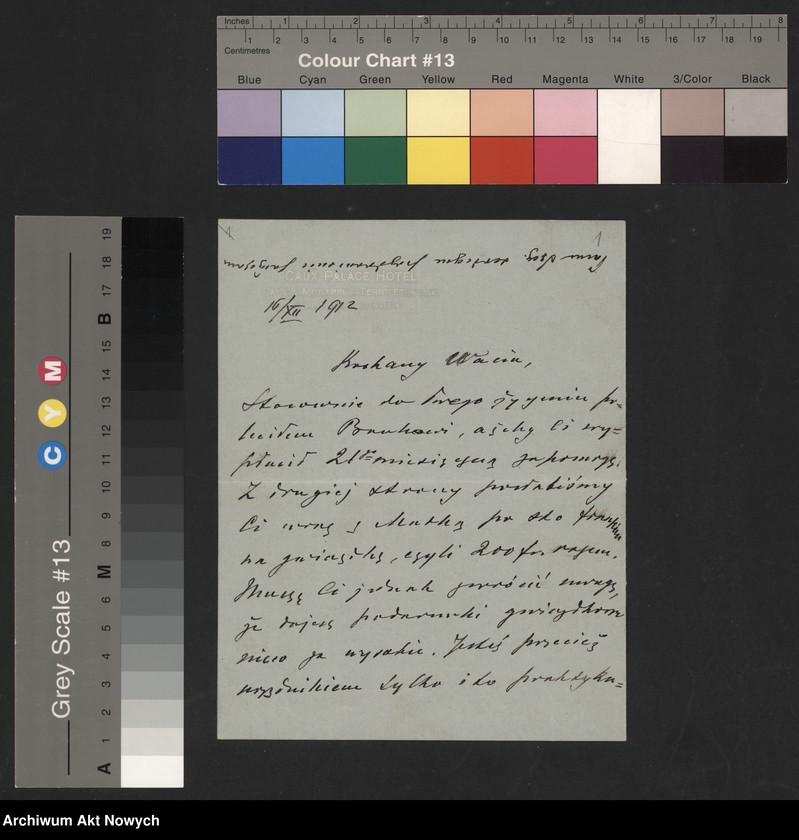 Inches 1 2 3 4 5 6 7 8
Centimetres 1 2 3 4 5 6 7 8 9 10 11 12 13 14 15 16 17 18 19
Colour Chart #13
Blue Cyan Green Yellow Red Magenta White 3/Color Black
Grey Scale #13
C Y M
A 1 2 3 4 5 6 M 8 9 10 11 12 13 14 15 B 17 18 19
1
CAUX PALACE HOTEL
16/XII 1912
Kochany Waciu,
Stosownie do Twego życzenia po=
leciłem Bankowi, ażeby Ci wy=
płacił zapomogę.
Z drugiej strony posłaliśmy
Ci wraz z Matką po sto
na gwiazdkę, czyli 200 razem.
Muszę Ci jednak zwrócić uwagę,
że dajesz podarunki gwiazdkowe
nieco za wysokie. Jesteś przecież
urzędnikiem tylko i to praktyku=
Archiwum Akt Nowych